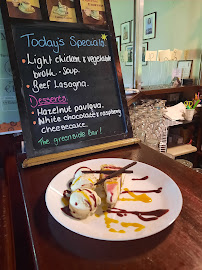 Today's Specials
• Light chicken & vegetable
broth - Soup.
• Beef Lasagna.
Desserts:
• Hazelnut pavlova,
• White chocolate & raspberry
cheesecake.
The greenside Bar!